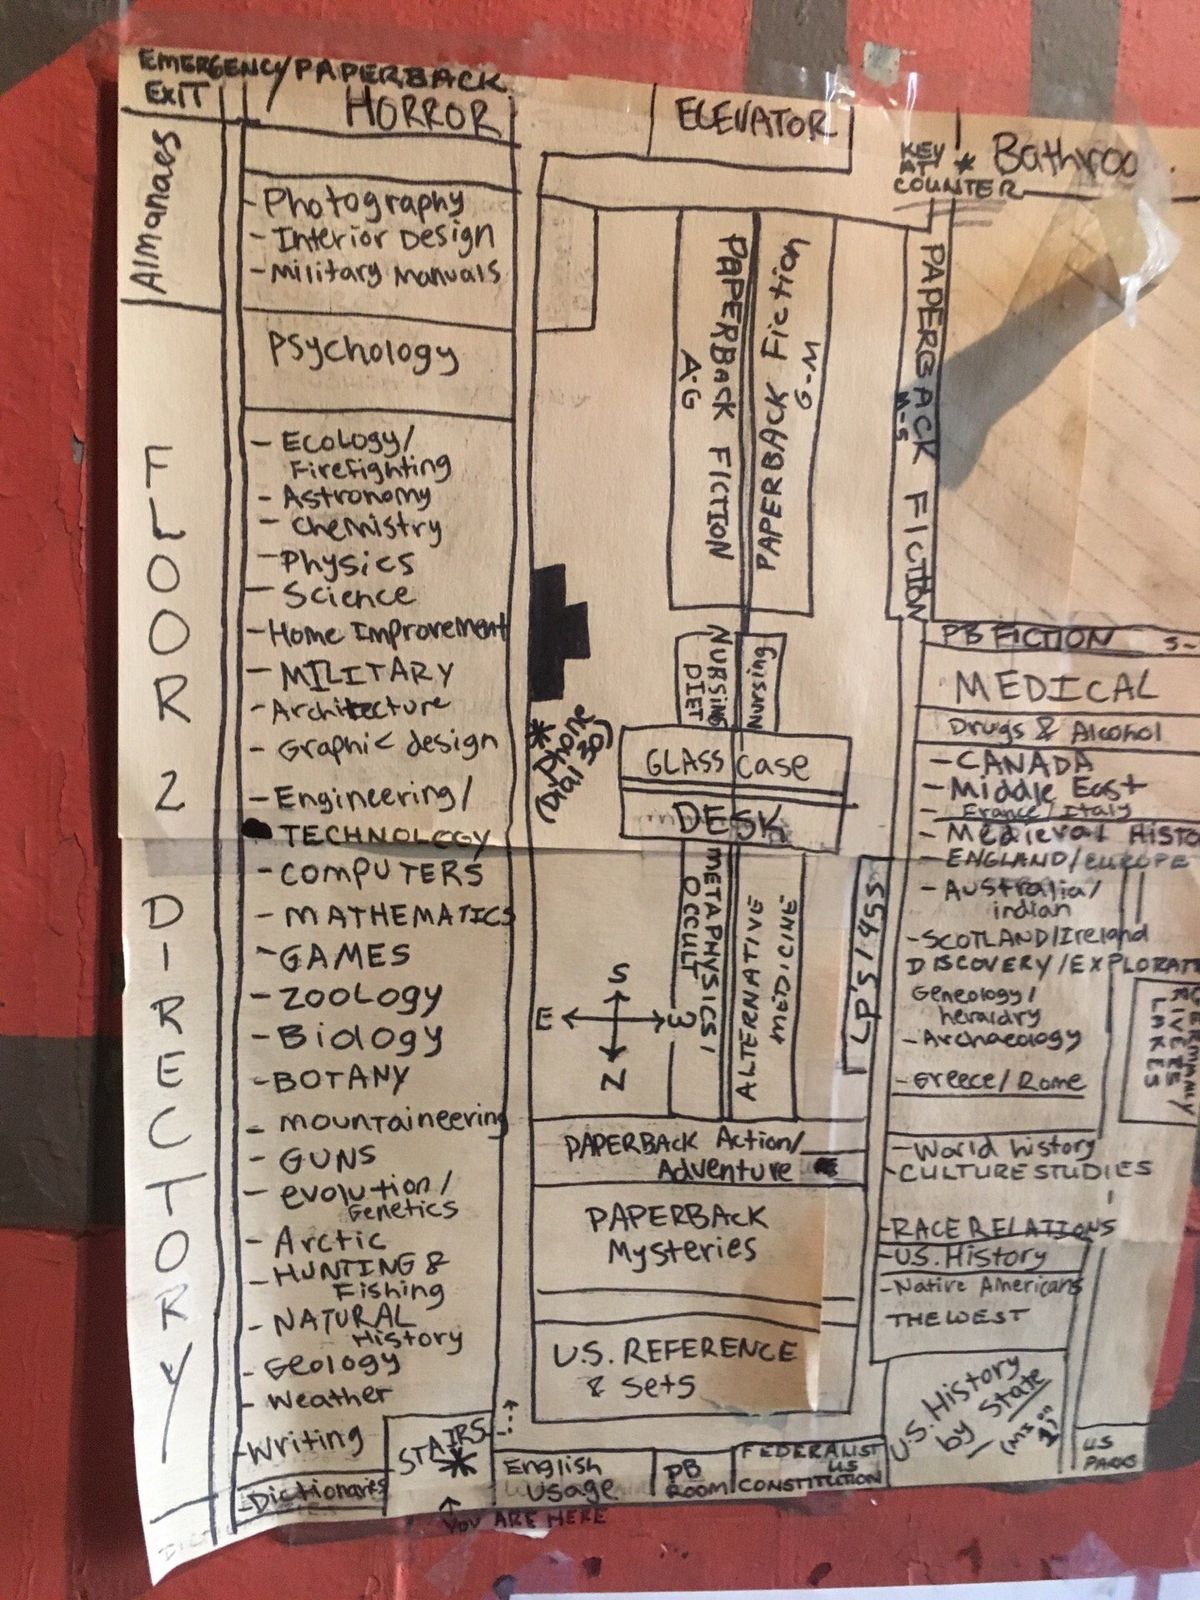 EMERGENCY
EXIT
PAPERBACK
HORROR
Almanacs
FLOOR 2 DIRECTORY
- Photography
- Interior Design
- Military Manuals
Psychology
- Ecology/
Firefighting
- Astronomy
- Chemistry
- Physics
- Science
- Home Improvement
- MILITARY
- Architecture
- Graphic design
- Engineering/
TECHNOLOGY
- COMPUTERS
- MATHEMATICS
- GAMES
- ZOOLOGY
- Biology
- BOTANY
- mountaineering
- GUNS
- evolution/
Genetics
- Arctic
- HUNTING &
Fishing
- NATURAL
History
- Geology
- Weather
- Writing
- Dictionaries
STAIRS
*
YOU ARE HERE
ELEVATOR
KEY
AT
COUNTER
* Bathroo
PAPERBACK FICTION
A-G
PAPERBACK Fiction
G-M
PAPERBACK FICTION
M-S
NURSING
DIET
Nursing
* Phone
(Dial 30)
GLASS case
DESK
METAPHYSICS/
OCCULT
ALTERNATIVE
MEDICINE
LP'S/45S
S
E
W
N
PAPERBACK Action/
Adventure
PAPERBACK
Mysteries
U.S. REFERENCE
& Sets
English
Usage
PB
ROOM
FEDERALIST
US
CONSTITUTION
PB FICTION S-
MEDICAL
Drugs & Alcohol
- CANADA
- Middle East
- France/Italy
- Medieval Histo
- ENGLAND/EUROPE
- Australia/
indian
- SCOTLAND/Ireland
DISCOVERY/EXPLORATI
Geneology/
heraldry
- Archaeology
- Greece/Rome
GERMANY
RIVERS/
LAKES
- World history
- CULTURE STUDIES
- RACE RELATIONS
- U.S. History
- Native Americans
THE WEST
U.S. History
by State
US
PARKS